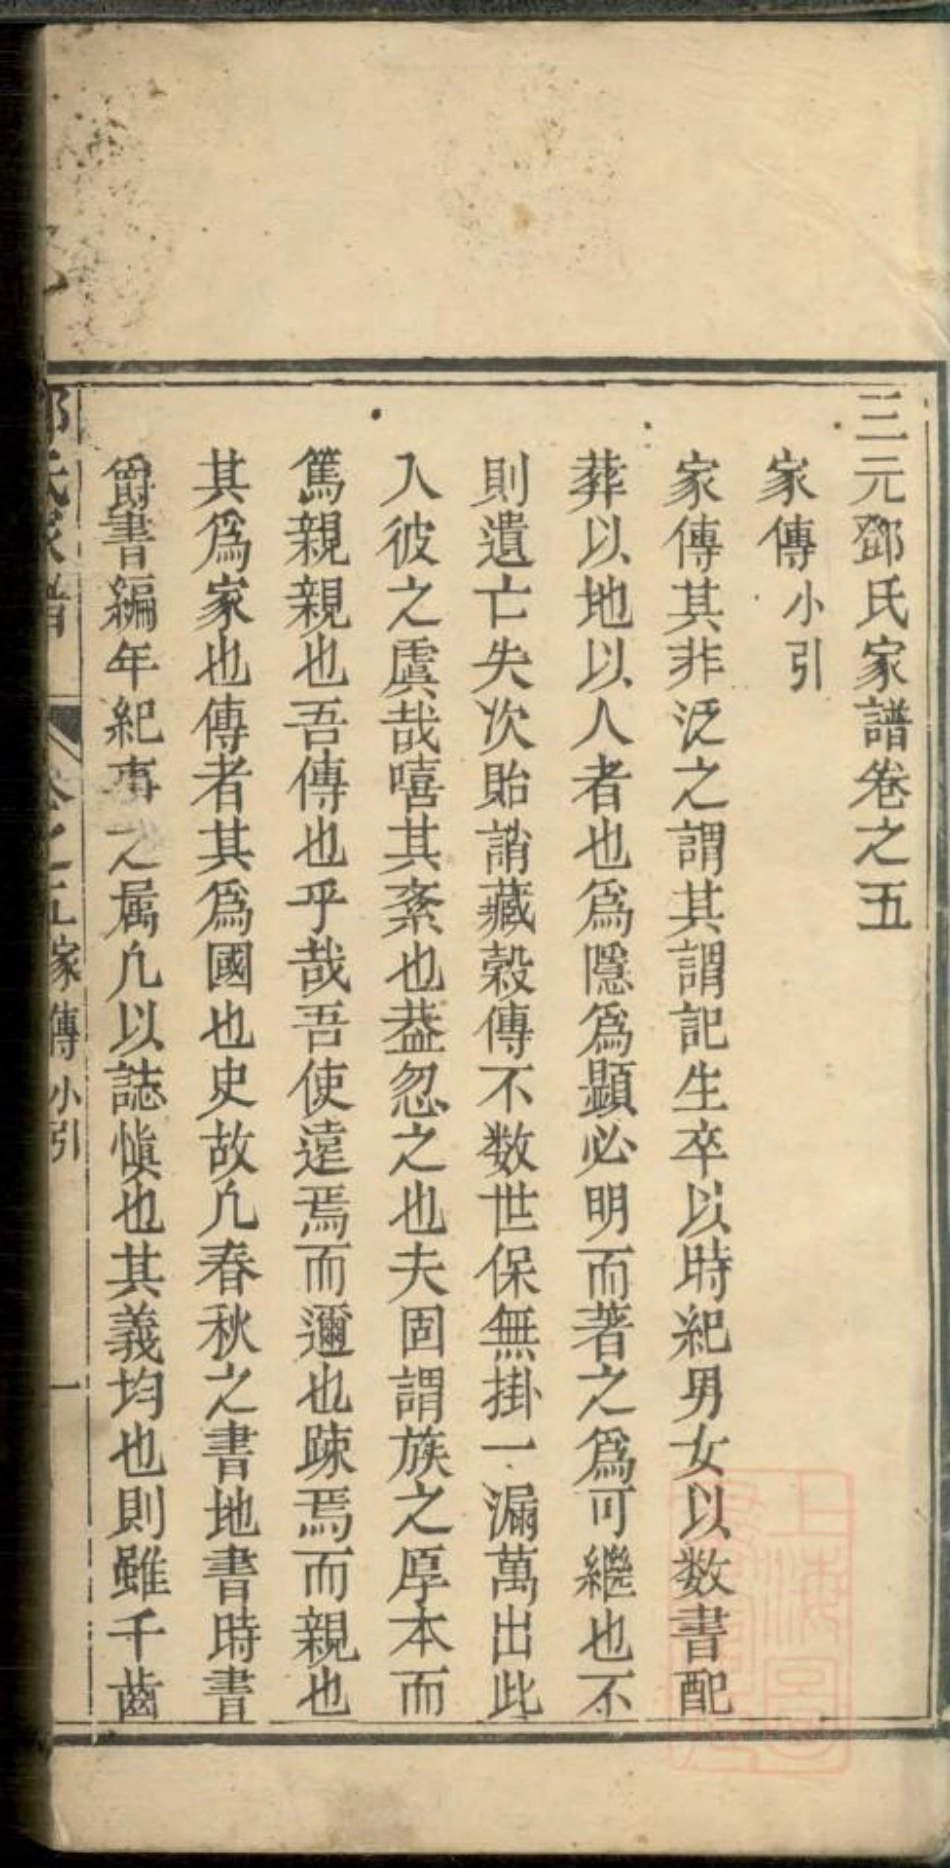 三元鄧氏家譜卷之五
家傳小引
家傳其非泛之謂其謂記生卒以時紀男女以数書配
葬以地以人者也爲隱爲顯必明而著之爲可繼也不
則遺亡失次貽誚藏榖傳不数世保無掛一漏萬出此
入彼之虞哉嘻其紊也葢忽之也夫固謂族之厚本而
篤親親也吾傳也乎哉吾使遠焉而邇也踈焉而親也
其爲家也傳者其爲國也史故凢春秋之書地書時書
爵書編年紀事之属凢以誌愼也其義均也則雖千齒
鄧氏家譜 卷之五 家傳小引 一
上海圖書館藏